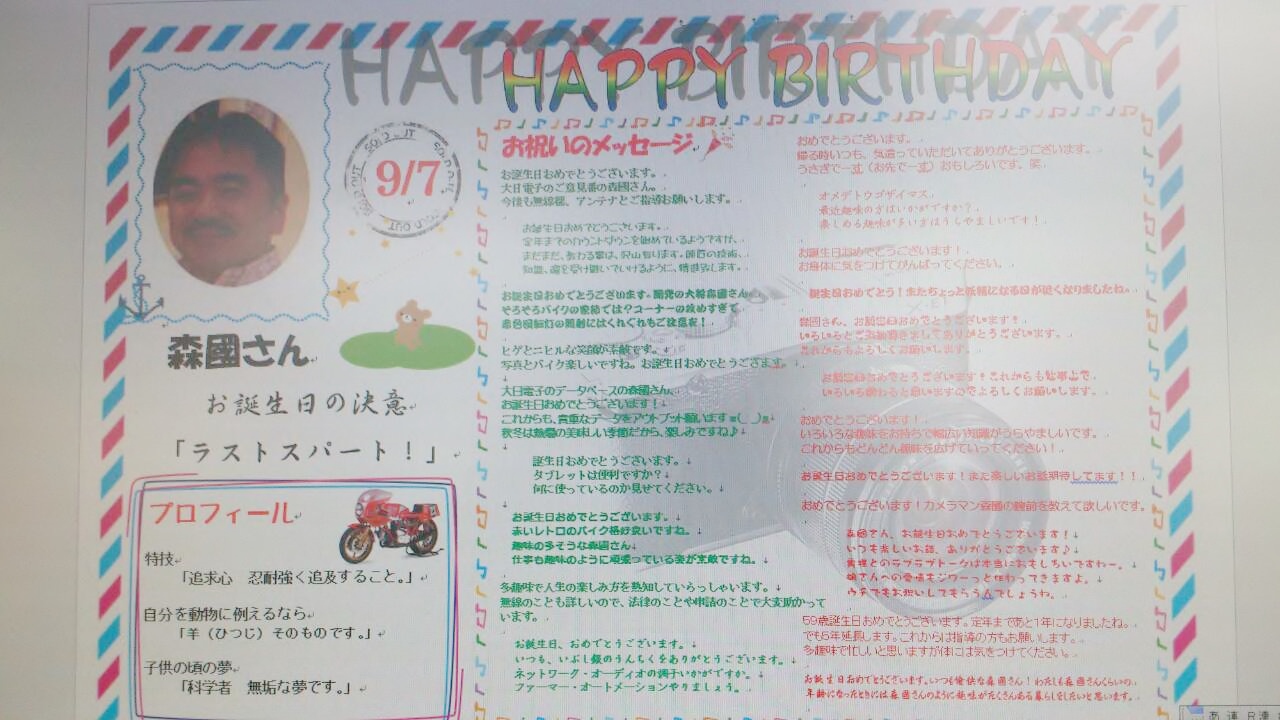 HAPPY BIRTHDAY
9/7
SOLD OUT
森國さん
お誕生日の決意
「ラストスパート！」
プロフィール
特技
「追求心　忍耐強く追及すること。」
自分を動物に例えるなら
「羊（ひつじ）そのものです。」
子供の頃の夢
「科学者　無垢な夢です。」
お祝いのメッセージ
お誕生日おめでとうございます。
大日電子のご意見番の森國さん。
今後も無線機、アンテナとご指導お願いします。
お誕生日おめでとうございます。
定年までのカウントダウンを始めているようですが、
まだまだ、教わる事は、沢山有ります。師匠の技術、
知識、魂を受け継いでいけるように、精進致します。
お誕生日おめでとうございます。開発の大将森國さん。
そろそろバイクの季節では？コーナーの攻めすぎで
赤色回転灯の照射にはくれぐれもご注意を！
ヒゲとニヒルな笑顔が素敵です。
写真とバイク楽しいですね。お誕生日おめでとうございます。
大日電子のデータベースの森國さん
お誕生日おめでとうございます！
これからも、貴重なデータをアウトプット願います m(_ _)m
秋冬は熱燗の美味しい季節だから、楽しみですね♪
誕生日おめでとうございます。
タブレットは便利ですか？
何に使っているのか見せてください。
お誕生日おめでとうございます。
赤いレトロのバイク格好良いですね。
趣味の多そうな森國さん
仕事も趣味のように頑張っている姿が素敵ですね。
多趣味で人生の楽しみ方を熟知していらっしゃいます。
無線のことも詳しいので、法律のことや申請のことで大変助かって
います。
お誕生日、おめでとうございます。
いつも、いぶし銀のうんちくをありがとうございます。
ネットワーク・オーディオの調子いかがですか。
ファーマー・オートメーションやりましょう。
おめでとうございます。
撮る時いつも、気遣っていただいてありがとうございます。
うさぎでーす（お先でーす）おもしろいです。笑
オメデトウゴザイマス
最近趣味の方はいかがですか？
楽しめる趣味が多い方はうらやましいです！
お誕生日おめでとうございます！
お身体に気をつけてがんばってください。
誕生日おめでとう！またちょっと妖精になる日が近くなりましたね。
森國さん、お誕生日おめでとうございます！
いろいろとご指導頂きましてありがとうございます。
これからもよろしくお願いします。
お誕生日おめでとうございます！これからも仕事上で、
いろいろ関わると思いますのでよろしくお願いします。
おめでとうございます！
いろいろな趣味をお持ちで幅広い知識がうらやましいです。
これからもどんどん趣味を広げていってください！
お誕生日おめでとうございます！また楽しいお話期待してます！！
おめでとうございます！カメラマン森國の腕前を教えて欲しいです。
森國さん、お誕生日おめでとうございます！
いつも楽しいお話、ありがとうございます♪
奥様とのラブラブトークは本当におもしろいですわー。
娘さんへの愛情もジワーっと伝わってきますよ。
ウチでもお祝いしてもらうんでしょうね。
59歳誕生日おめでとうございます。定年まであと1年になりましたね。
でも5年延長します。これからは指導の方もお願いします。
多趣味で忙しいと思いますが体には気をつけてください。
お誕生日おめでとうございます。いつも愉快な森國さん！わたしも森國さんくらいの、
年齢になったときには森國さんのように趣味がたくさんある暮らしをしたいと思います。